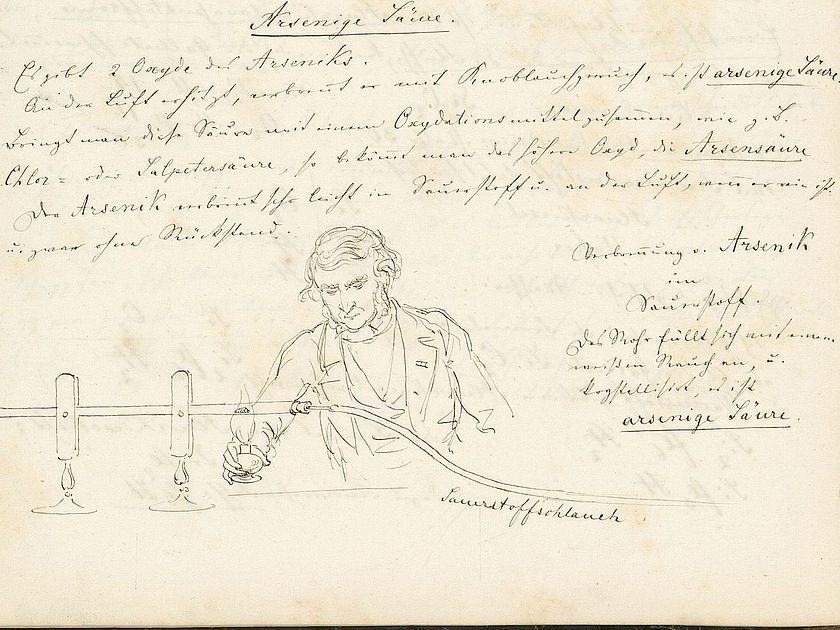 Arsenige Säure.
Es gibt 2 Oxyde des Arseniks.
An der Luft erhitzt, verbrennt er mit Knoblauchgeruch, es ist arsenige Säure.
Bringt man diese Säure mit einem Oxydationsmittel zusammen, wie z. B.
Chlor = oder Salpetersäure, so bekömmt man das höhere Oxyd, die Arsensäure
Der Arsenik verbrennt sehr leicht in Sauerstoff u. an der Luft, wenn er rein ist
u. zwar ohne Rückstand.
Verbrennung v. Arsenik
im
Sauerstoff.
Das Rohr füllt sich mit einem
weißen Rauch an, u.
krystallisirt, es ist
arsenige Säure.
Sauerstoffschlauch